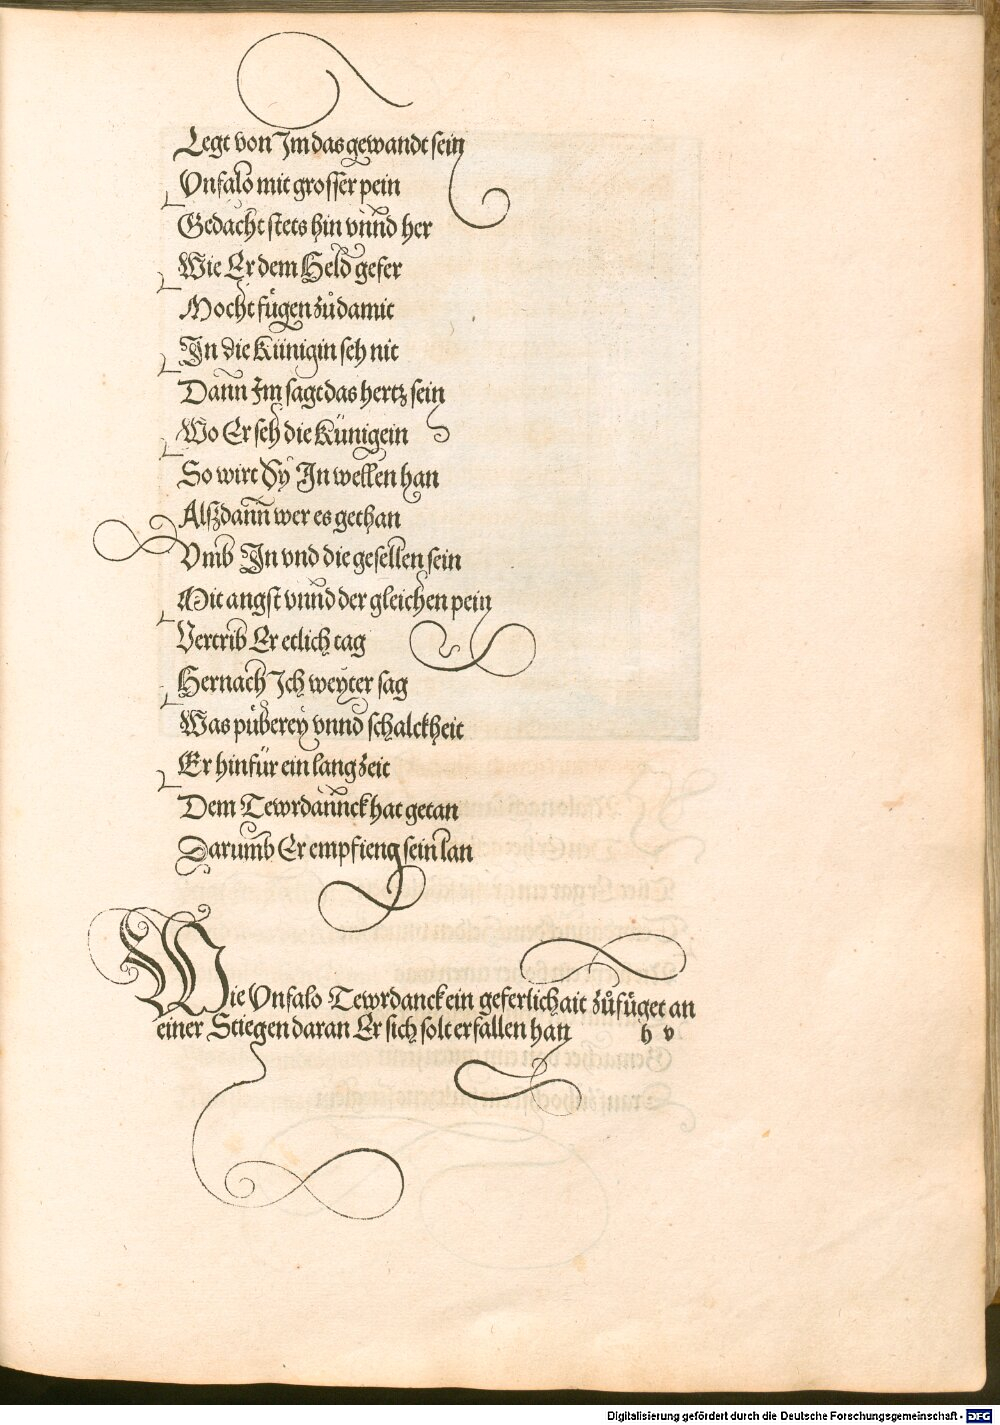 Legt von Im das gewandt sein
Vnfalo mit grosser pein
Gedacht stets hin vnnd her
Wie Er dem Held gefer
Mocht fuͤgen zuͦ damit
In die Künigin seh nit
Dann Im sagt das hertz sein
Wo Er seh die Künigein
So wirt Sy In wellen han
Alßdann wer es gethan
Vmb In vnd die gesellen sein
Mit angst vnnd der gleichen pein
Vertrib Er etlich tag
Hernach Ich weyter sag
Was puͤberey vnnd schalckheit
Er hinfür ein lang zeit
Dem Tewrdannck hat getan
Darumb Er empfieng sein lan
Wie Vnfalo Tewrdanck ein geferlichait zuͦfuͤget an
einer Stiegen daran Er sich solt erfallen han
h v
Digitalisierung gefördert durch die Deutsche Forschungsgemeinschaft - DFG